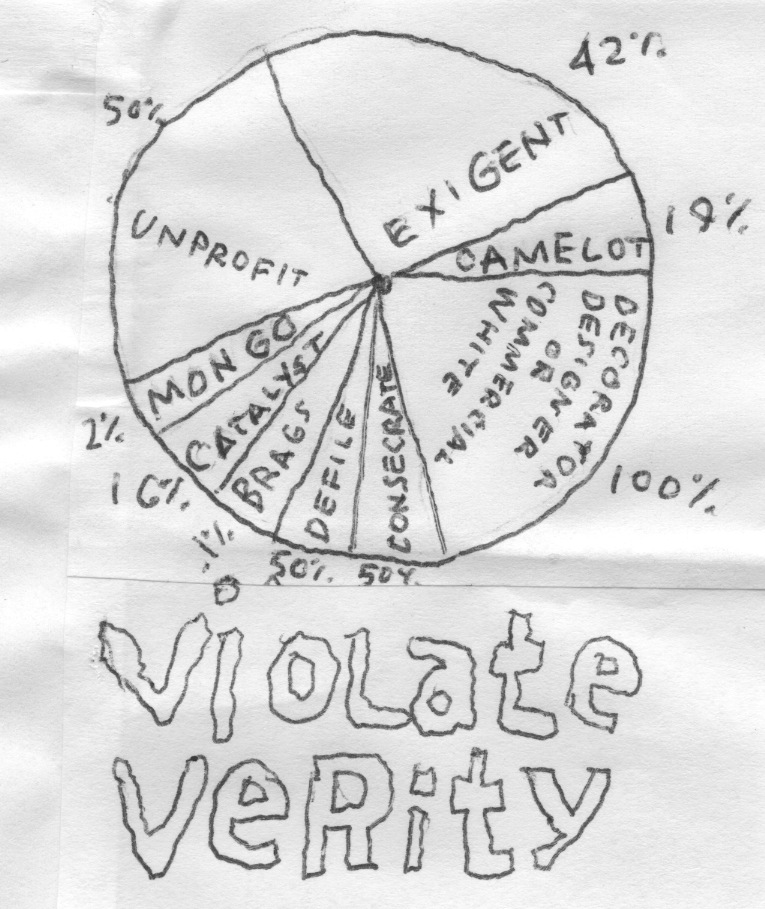 42%
50%
EXIGENT
19%
CAMELOT
UNPROFIT
DECORATOR
DESIGNER
OR
COMMERCIAL
WHITE
MONGO
CATALYST
BRAGS
DEFILE
CONSECRATE
2%
16%
.1%
50%
50%
100%
VIOLatE
VERity